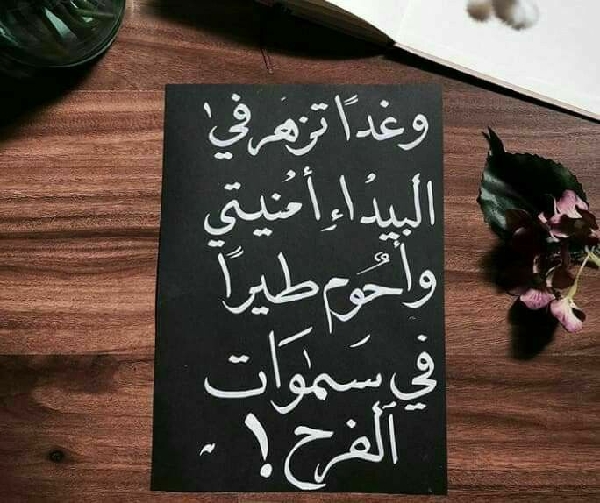 وغدًا تزهر في
البيداءِ أمنيتي
وأحُوم طيرًا
في سَمٰوَات
الفرح !